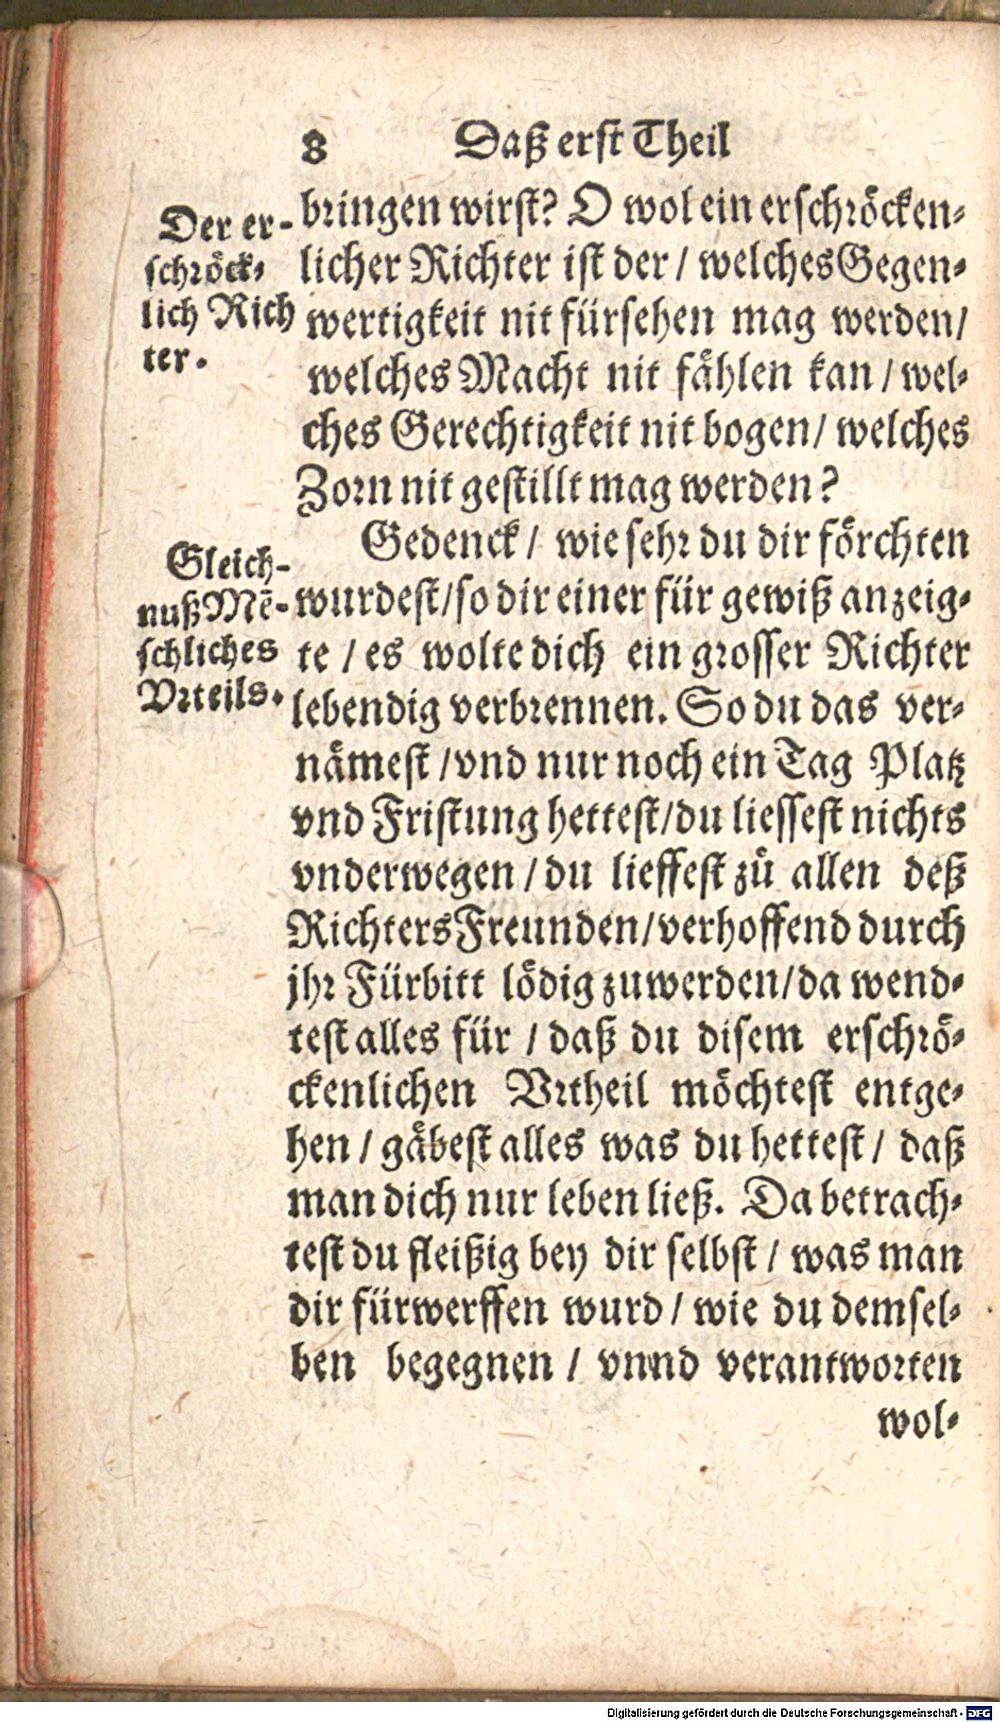 8 Daß erst Theil
Der er-
schröck-
lich Rich
ter.
bringen wirst? O wol ein erschröcken-
licher Richter ist der / welches Gegen-
wertigkeit nit fürsehen mag werden/
welches Macht nit fählen kan / wel-
ches Gerechtigkeit nit bogen / welches
Zorn nit gestillt mag werden?
Gleich-
nuß Mẽ-
schliches
Vrteils.
Gedenck / wie sehr du dir förchten
wurdest/so dir einer für gewiß anzeig-
te / es wolte dich ein grosser Richter
lebendig verbrennen. So du das ver-
nämest /vnd nur noch ein Tag Platz
vnd Fristung hettest/du liessest nichts
vnderwegen / du lieffest zů allen deß
Richters Freunden/verhoffend durch
jhr Fürbitt lödig zuwerden/da wend-
test alles für / daß du disem erschrö-
ckenlichen Vrtheil möchtest entge-
hen / gäbest alles was du hettest / daß
man dich nur leben ließ. Da betrach-
test du fleißig bey dir selbst / was man
dir fürwerffen wurd / wie du demsel-
ben begegnen / vnnd verantworten
wol-
Digitalisierung gefördert durch die Deutsche Forschungsgemeinschaft - DFG